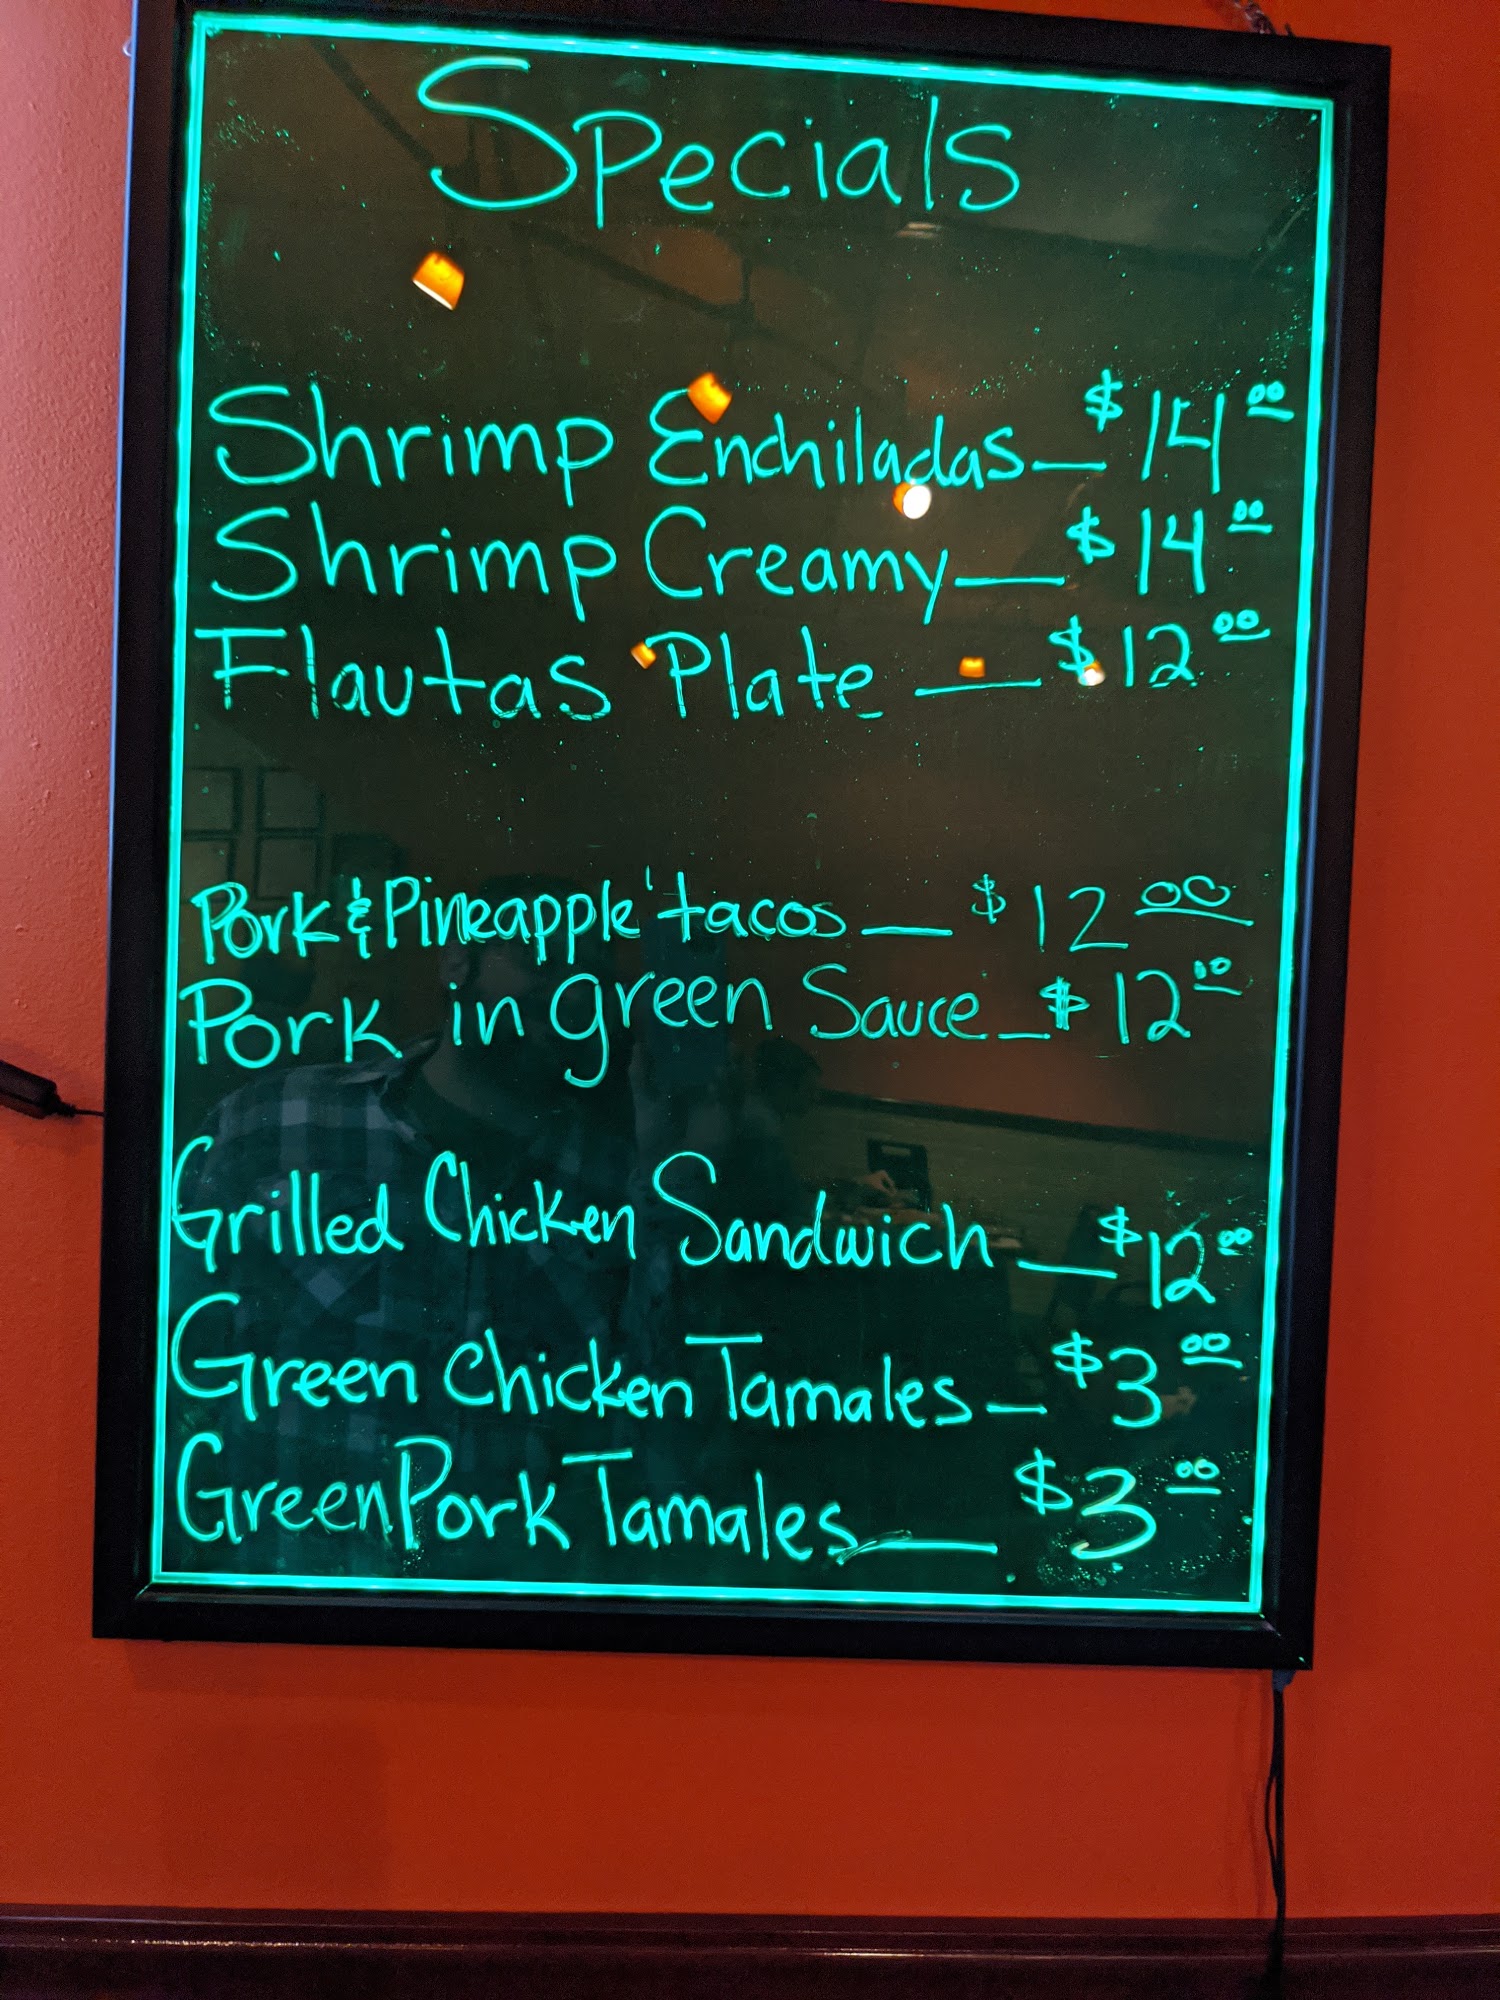 Specials
Shrimp Enchiladas — $14.00
Shrimp Creamy — $14.00
Flautas Plate — $12.00
Pork & Pineapple tacos — $12.00
Pork in green Sauce — $12.00
Grilled Chicken Sandwich — $12.00
Green Chicken Tamales — $3.00
Green Pork Tamales — $3.00